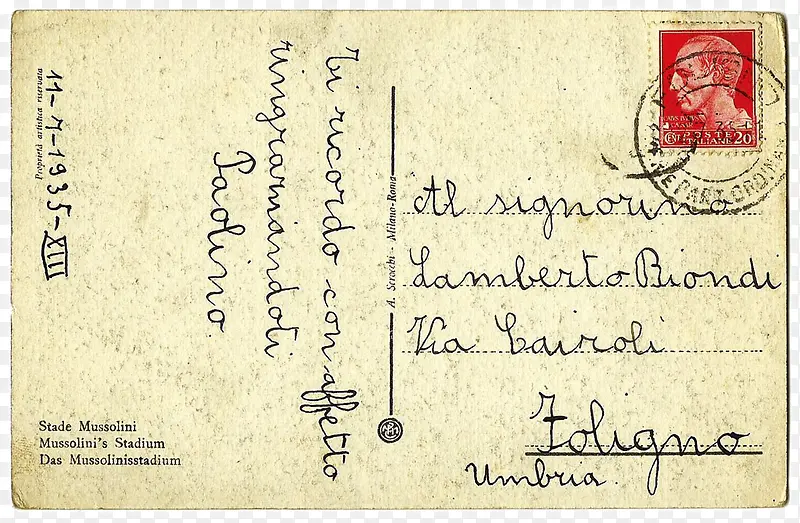 11-7-1935-XIII
Proprietà artistica riservata
Ti ricordo con affetto
ringraziandoti
Paolino
Stade Mussolini
Mussolini's Stadium
Das Mussolinisstadium
A. Scrocchi - Milano-Roma
CAIVS IVLIVS
CAESAR
POSTE
CENT ITALIANE 20
REPART. ORDINAR
Al signorino
Lamberto Biondi
Via Cairoli
Foligno
Umbria.